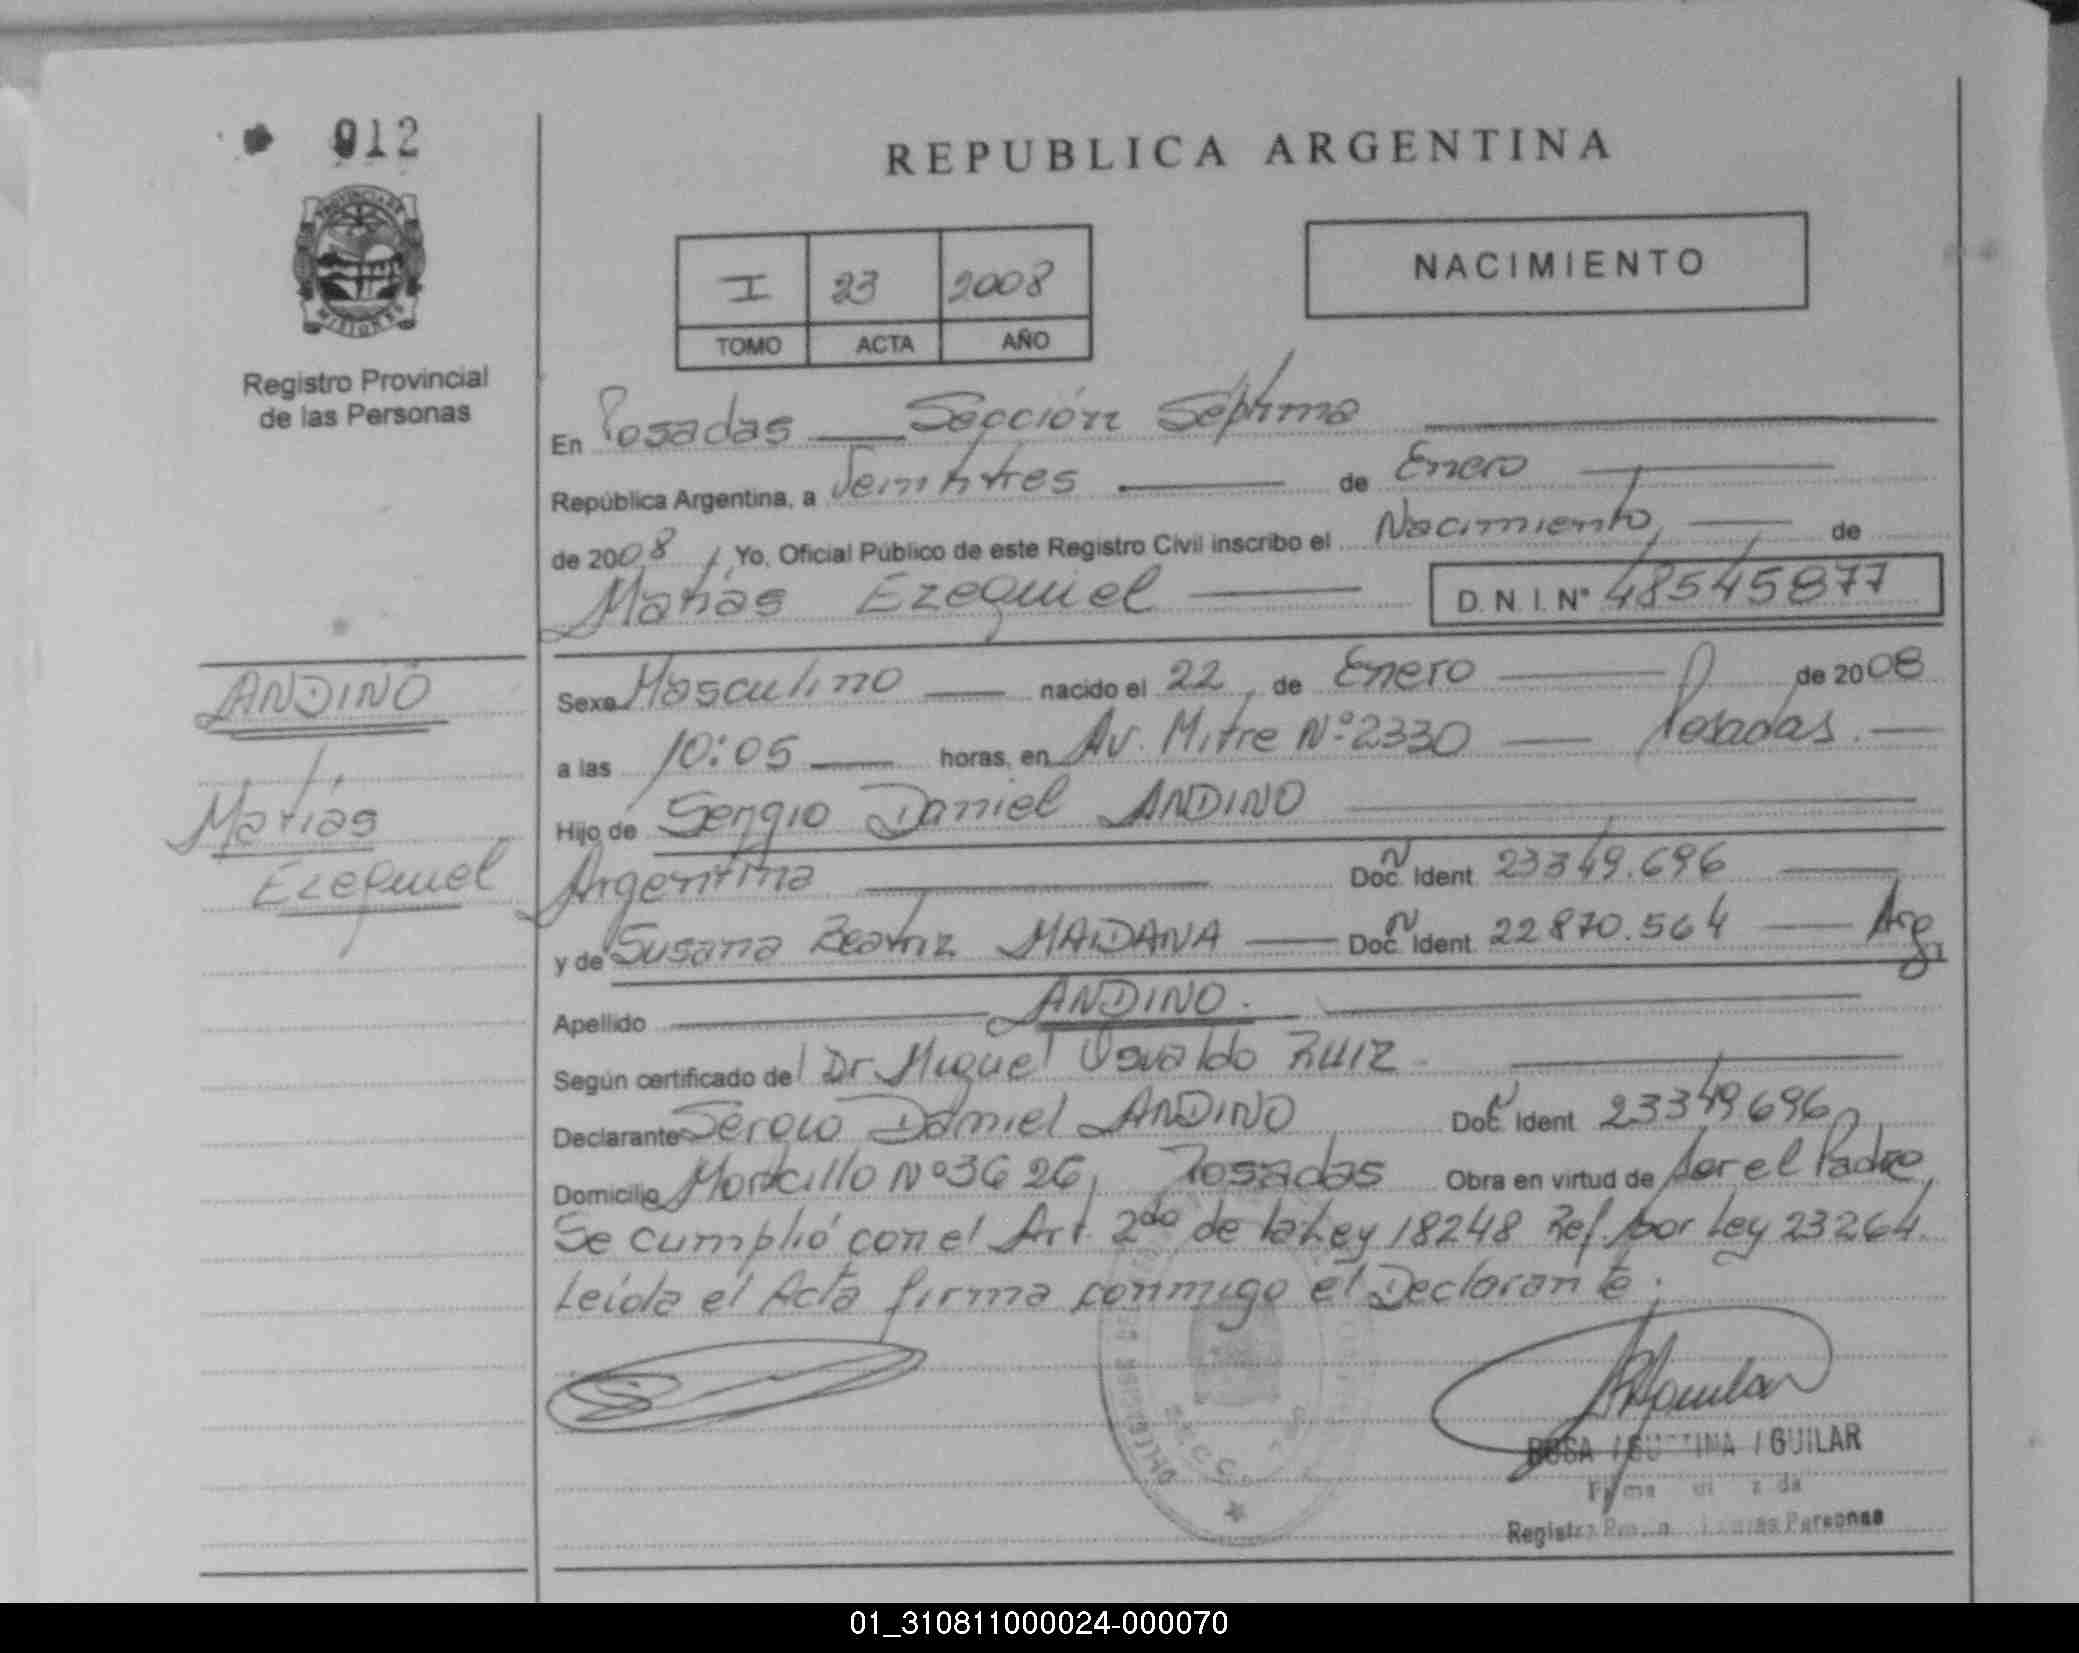 012
PROVINCIA DE
MISIONES
Registro Provincial
de las Personas
REPUBLICA ARGENTINA
I 23 2008
TOMO ACTA AÑO
NACIMIENTO
En Posadas Sección Séptima
República Argentina, a Veintitres de Enero
de 2008, Yo, Oficial Público de este Registro Civil inscribo el Nacimiento, de
Matías Ezequiel D.N.I.N° 48545877
ANDINO
Matías
Ezequiel
Sexo Masculino nacido el 22, de Enero de 2008
a las 10:05 horas, en Av. Mitre Nº 2330 Posadas.
Hijo de Sergio Daniel ANDINO
Argentina Doc. Ident 23349.696
y de Susana Beatriz MAIDANA Doc. Ident 22870.564 Arg.
Apellido ANDINO.
Según certificado del Dr Miguel Osvaldo RUIZ
Declarante Sergio Daniel ANDINO Doc. Ident 23349696
Domicilio Nº 3626, Posadas Obra en virtud de Ser el Padre
Se cumplió con el Art. 2do de la Ley 18248 Ref. por Ley 23264.
Leída el Acta firma conmigo el Declarante.
ROSA AGUSTINA AGUILAR
Registro Personas
01_310811000024-000070